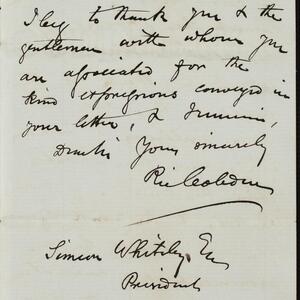 I beg to thank you & the
gentlemen with whom you
are associated for the
kind expressions conveyed in
your letter, & I remain,
Yours sincerely
Simeon Whiteley Esq
President